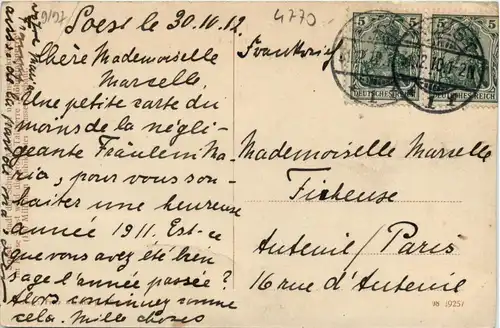 Soest le 30.12.12.
Chère Mademoiselle
Marcelle,
Une petite carte du
moins de la négli-
geante Fräulein Ma-
ria, pour vous sou-
haiter une heureuse
année 1911. Est-ce
que vous avez été bien
sage l'année passée?
Alors continuez comme
cela. Mille choses
4770
Frankreich
5 5
DEUTSCHES REICH DEUTSCHES REICH
Mademoiselle Marselle
Ficheuse
Auteuil/Paris
16 rue d'Auteuil